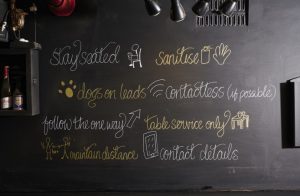 stay seated sanitise
dogs on leads contactless (if possible)
follow the one way table service only
maintain distance contact details